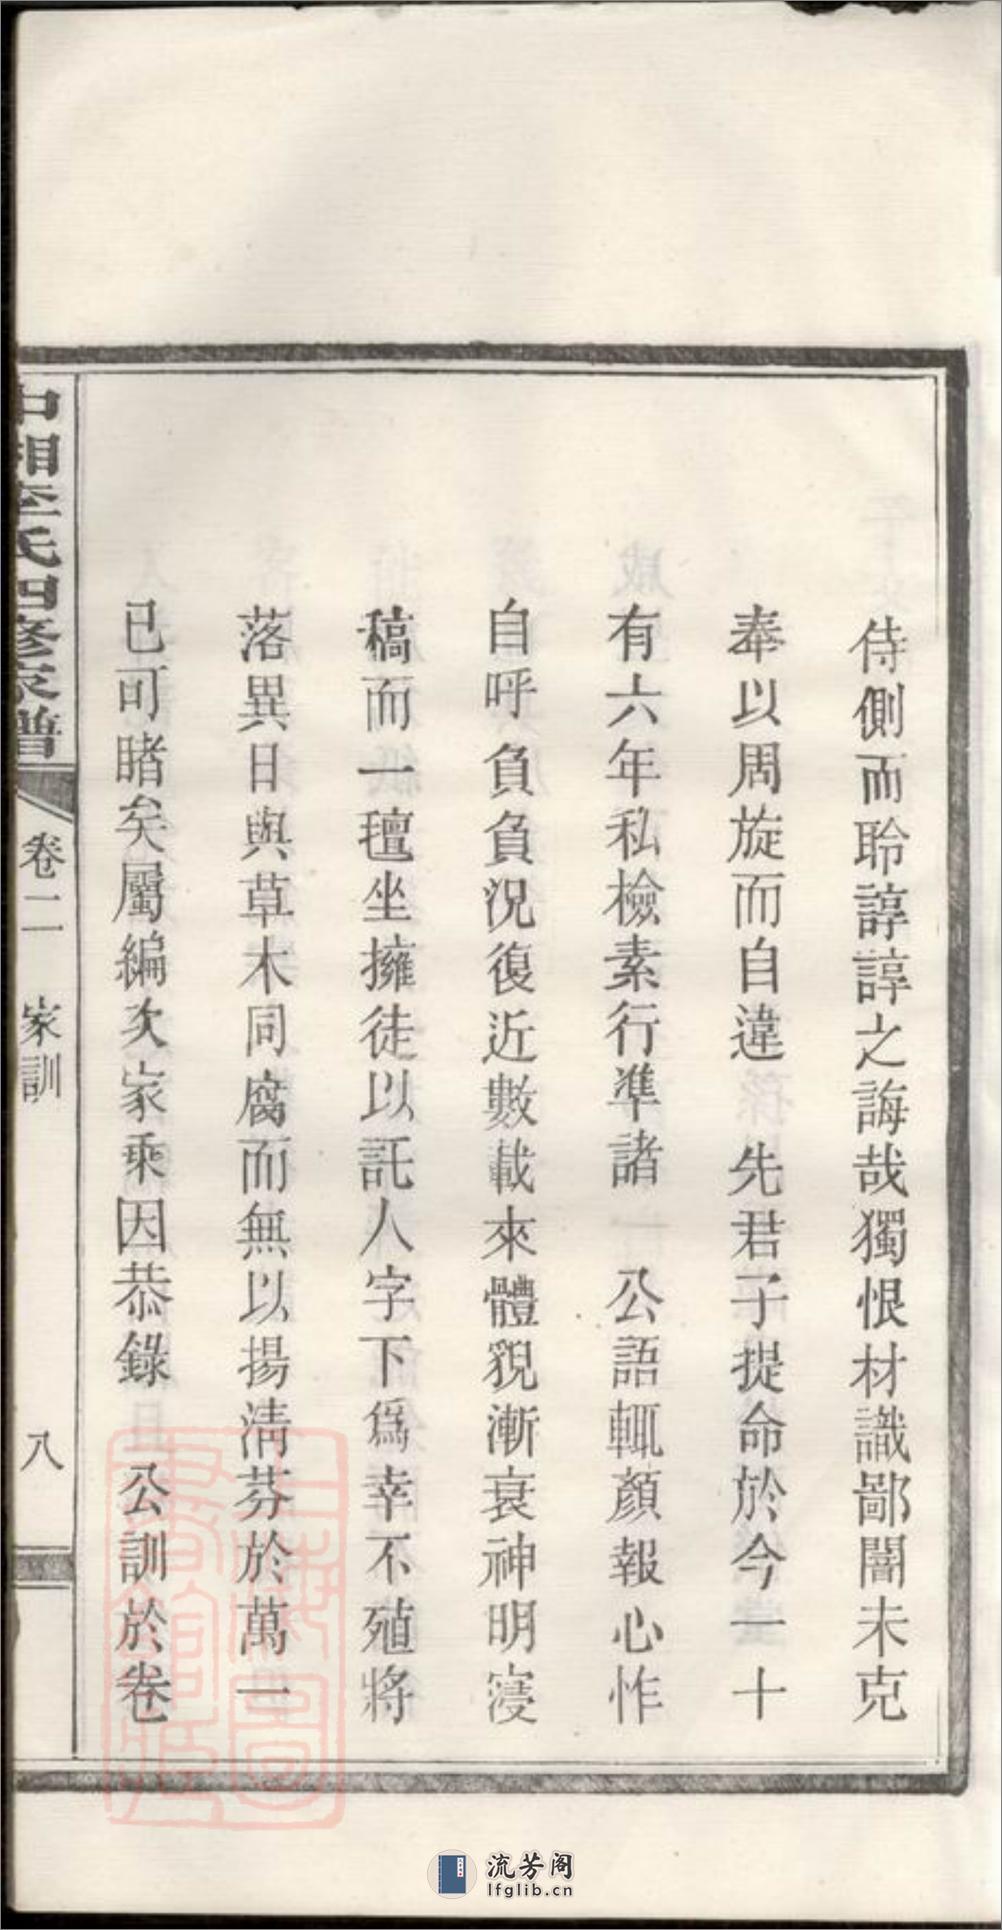 侍側而聆諄諄之誨哉獨恨材識鄙闇未克
奉以周旋而自違　先君子提命於今一十
有六年私檢素行準諸　公語輒顏報心怍
自呼負負況復近數載來體貌漸衰神明寖
稿而一氊坐擁徒以託人字下爲幸不殖將
落異日與草木同腐而無以揚清芬於萬一
已可睹矣屬編次家乘因恭錄　公訓於卷
中湘李氏四修家譜
卷二　家訓
八
上海圖書館藏
流芳阁
lfglib.cn